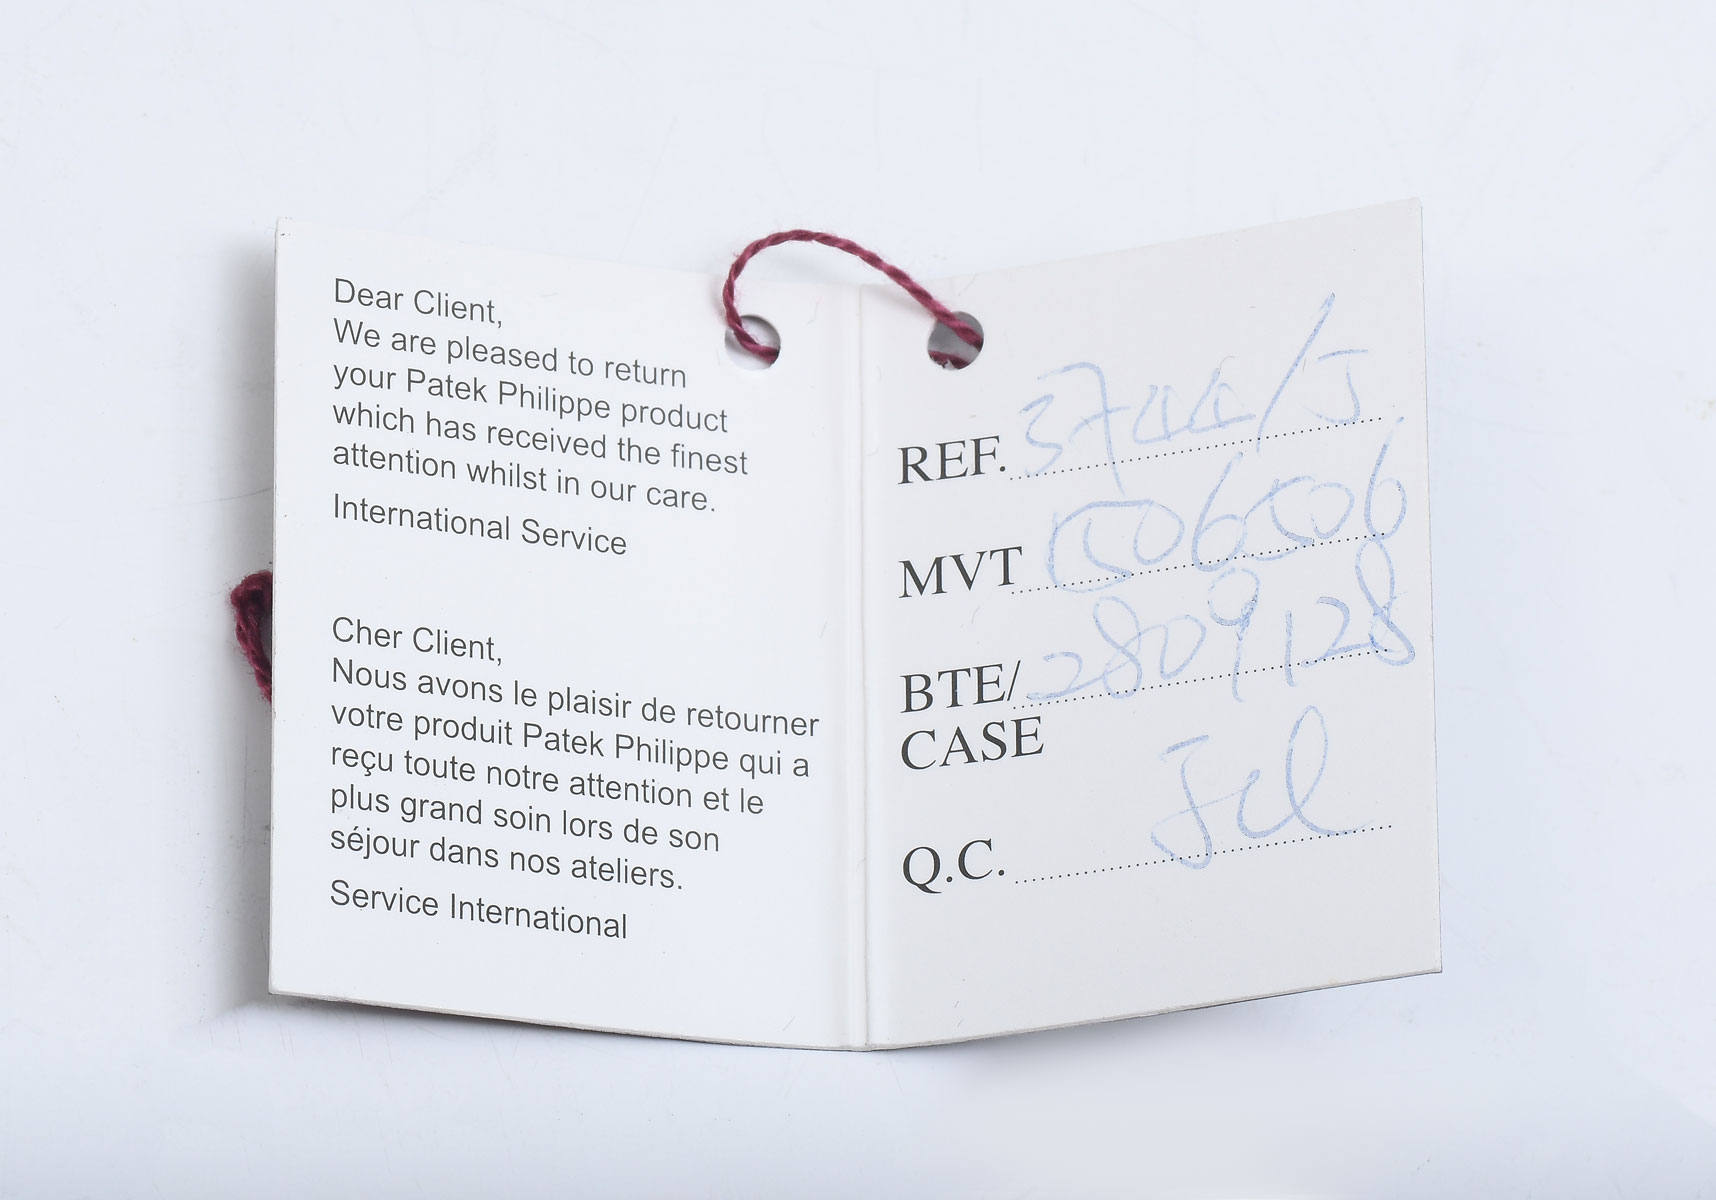 Dear Client,
We are pleased to return
your Patek Philippe product
which has received the finest
attention whilst in our care.
International Service
Cher Client,
Nous avons le plaisir de retourner
votre produit Patek Philippe qui a
reçu toute notre attention et le
plus grand soin lors de son
séjour dans nos ateliers.
Service International
REF. 3744/J
MVT 1506506
BTE/ 2809128
CASE
Q.C.